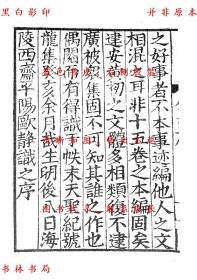 黑白影印
并非原本
之好事者不本事迹編他人之文
相混之耳非十五卷之本編固矣
建安黃初之文體多相類復不逮
廣被衆集固不可知其誰之作也
偶閱有得識于帙末天聖紀號
龍集癸亥余月哉生明後一日海
陵西齋平陽歐靜識之序
书林书局